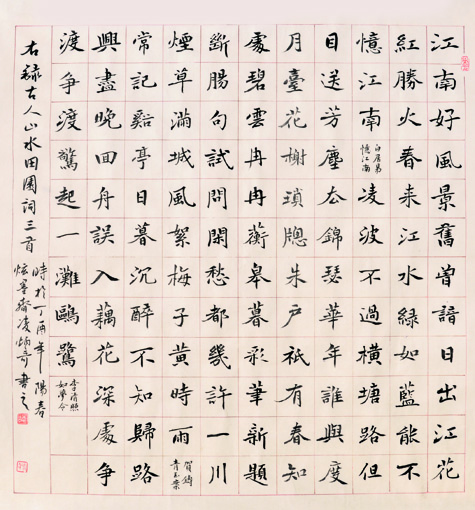 江南好風景舊曾諳日出江花
紅勝火春来江水緑如藍能不
憶江南
白居易
憶江南
凌波不過橫塘路但
目送芳塵去錦瑟華年誰與度
月臺花榭瑣牕朱戶祇有春知
處碧雲冉冉蘅皋暮彩筆新題
斷腸句試問閑愁都幾許一川
煙草滿城風絮梅子黃時雨
賀鑄
青玉案
常記谿亭日暮沉醉不知歸路
興盡晚回舟誤入藕花深處爭
渡爭渡驚起一灘鷗鷺
李清照
如夢令
右録古人山水田園詞三首
時於丁酉年陽春
炫墨齋凌炳奇書之